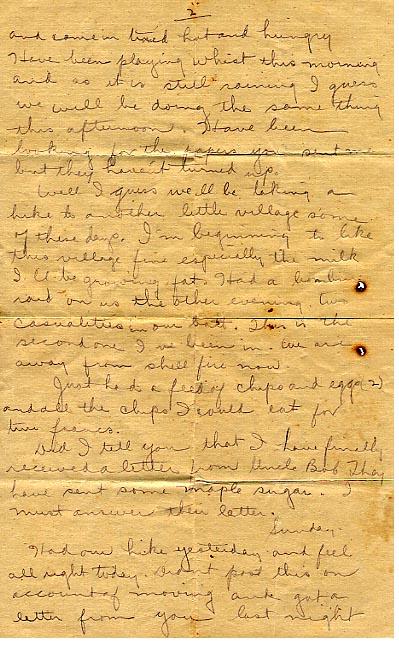 2
and came in tired hot and hungry
Have been playing whist this morning
and as it is still raining I guess
we will be doing the same thing
this afternoon. Have been
looking for the papers you sent me
but they havent turned up.
Well I guess we'll be taking a
hike to another little village some
of these days. I'm beginning to like
this village fine especially the milk
I'll be growing fat. Had a bombing
raid on us the other evening two
casualties in our batt. This is the
second one I've been in. We are
away from shell fire now.
Just had a feed of chips and eggs 2)
and all the chips I could eat for
two francs.
Did I tell you that I have finally
received a letter from Uncle Bob They
have sent some maple sugar. I
must answer their letter.
Sunday.
Had our hike yesterday and feel
all right today. Didn't post this on
account of moving and got a
letter from you last night